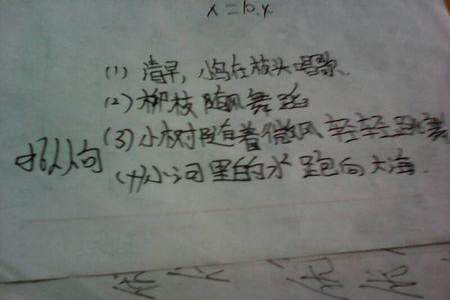 x=10.4
(1) 清早，小鸟在枝头唱歌
(2) 柳枝随风舞蹈
(3) 小树随着微风轻轻跳舞
拟人句
(4) 小河里的水跑向大海.